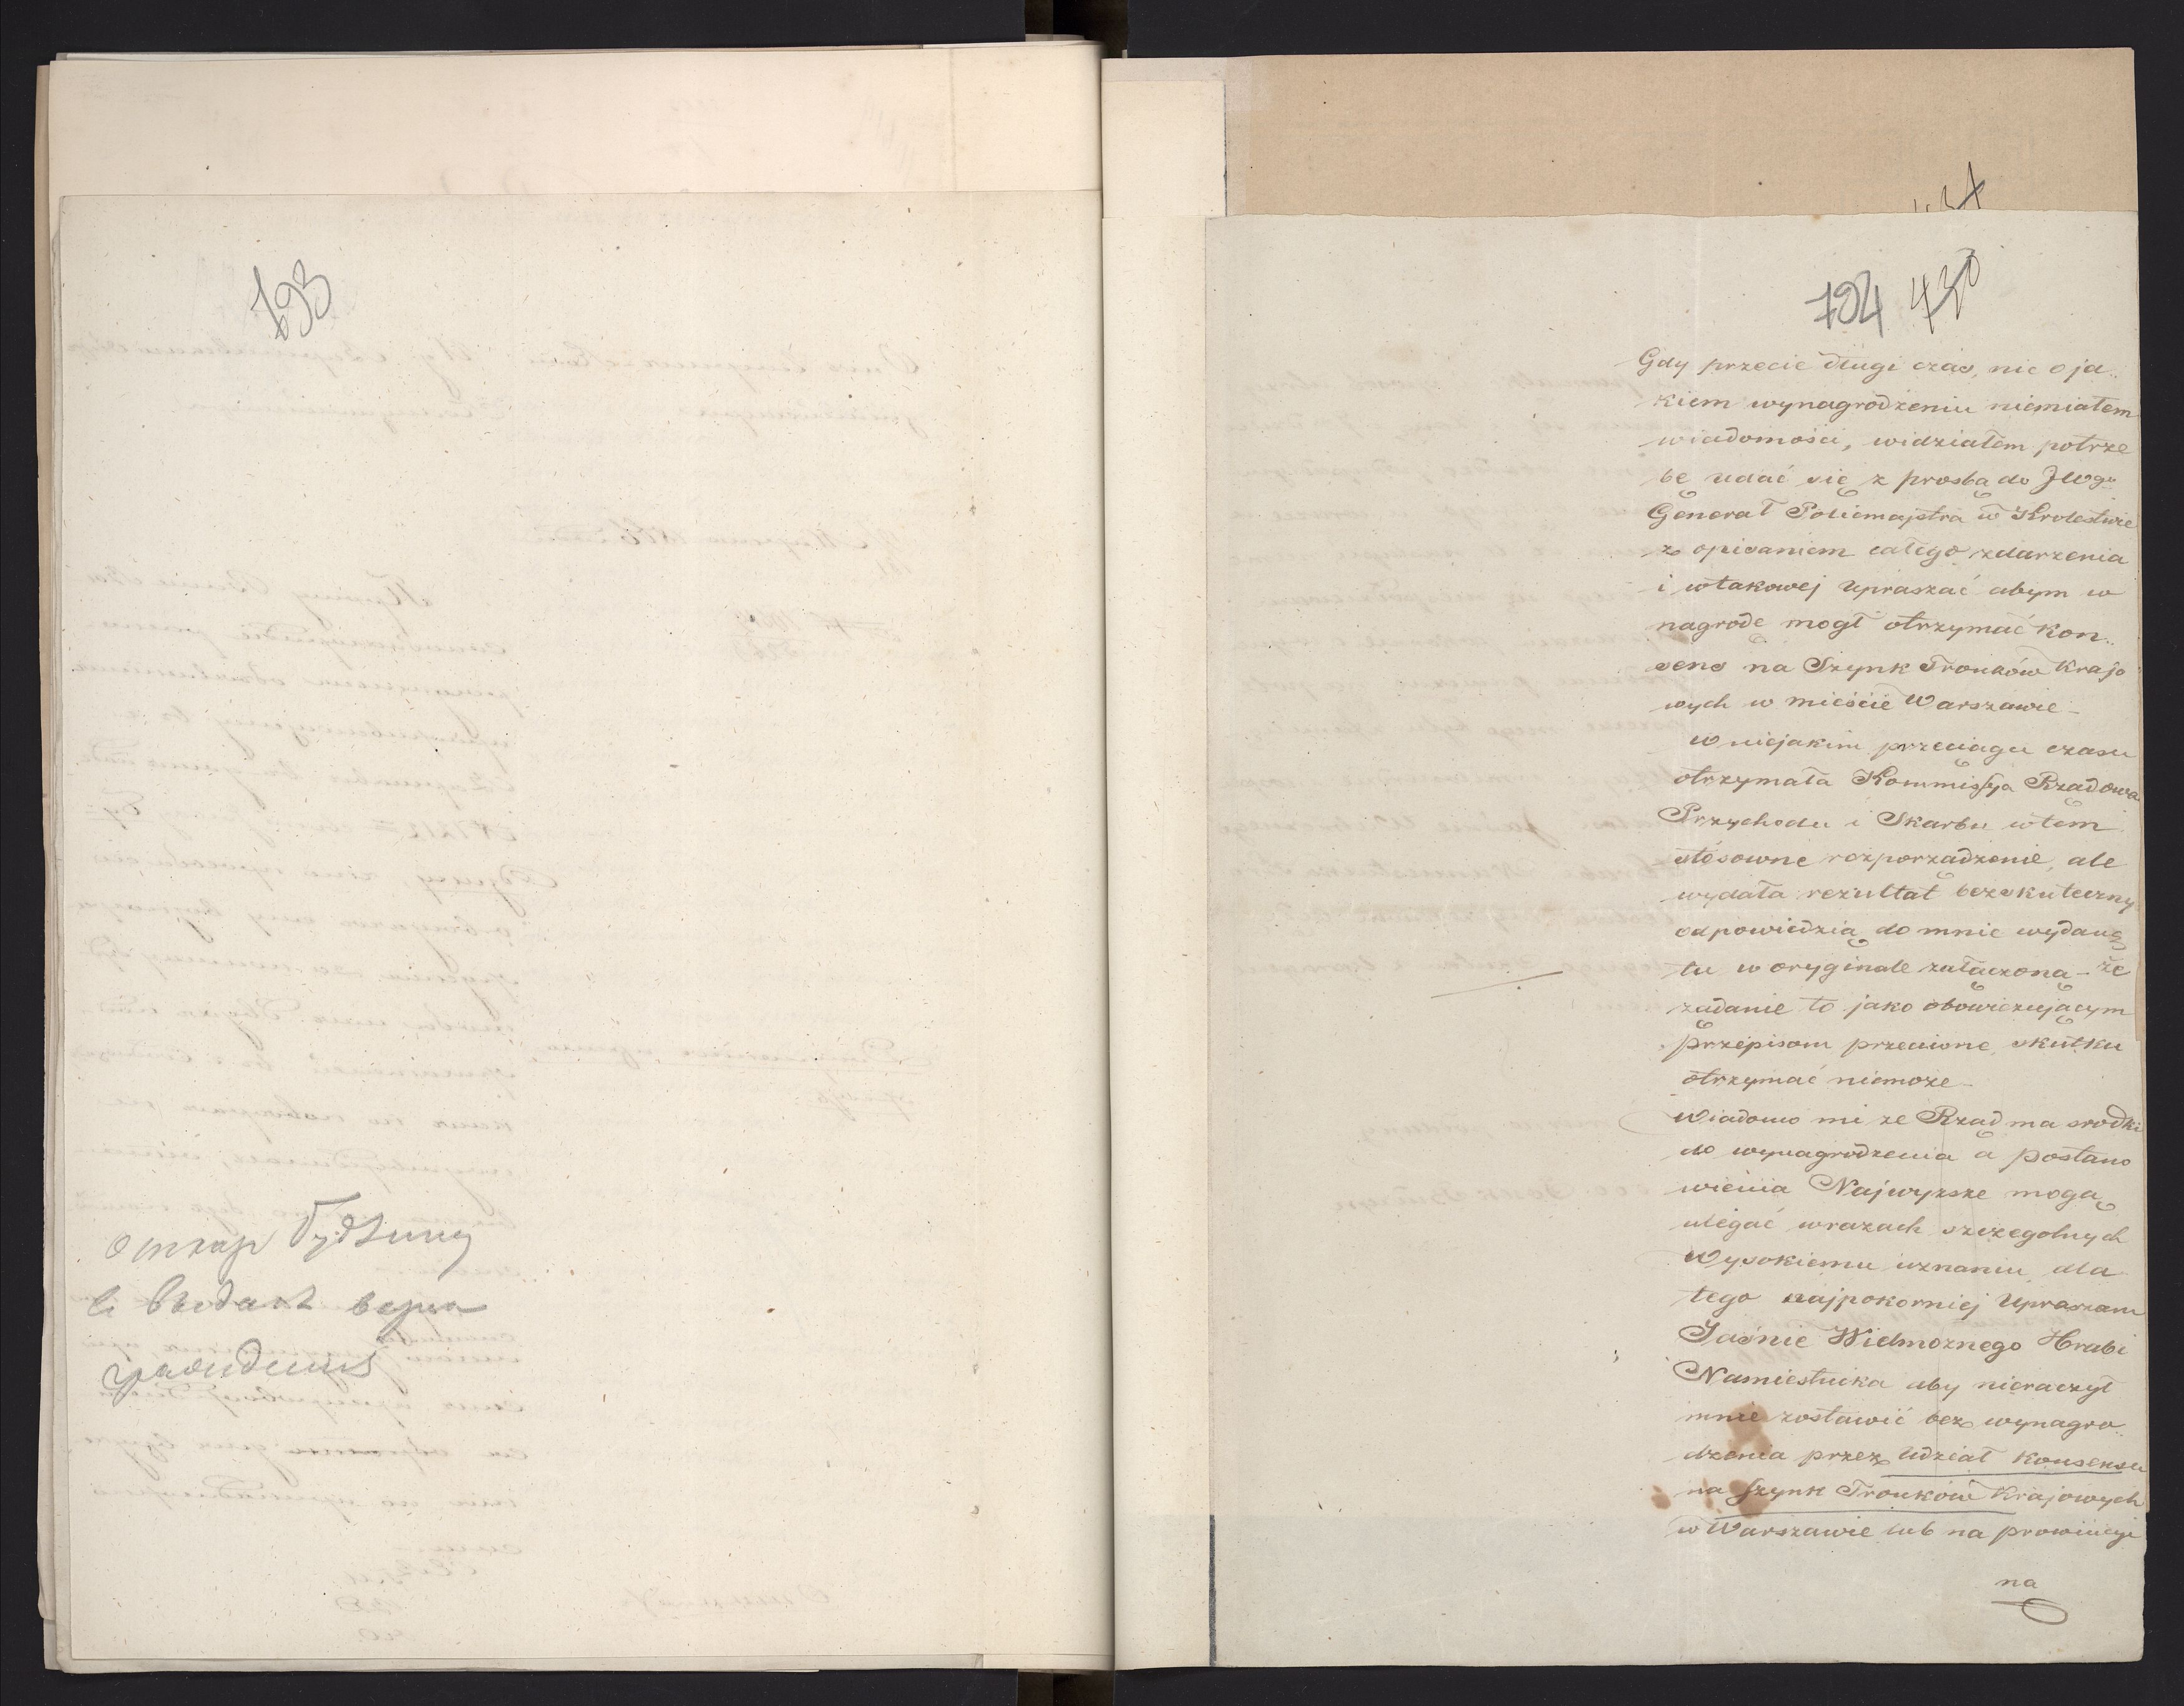 793
434
794 430
Gdy przecie długi czas, nic o ja„
kiem wynagrodzeniu niemiałem
wiadomości, widziałem potrze
bę udać się z prosbą do JWgo
Generał Policmajstra w Krolestwie
z opisaniem całego zdarzenia
i wtakowej upraszać abym w
nagrodę mogł otrzymać kon„
sens na Szynk Trunków Krajo
wych w mieście Warszawie –
w niejakim przeciągu czasu
otrzymała Kommissya Rządowa
Przychodu i Skarbu wtem
stósowne rozporządzenie, ale
wydała rezultat bezskuteczny
odpowiedzią do mnie wydaną
tu w oryginale załączoną – że
żądanie to jako obowięzującym
przepisom przeciwne, skutku
otrzymać niemoże –
Wiadomo mi ze Rząd ma srodki
do wynagrodzenia a postano
wienia Najwyższe mogą
ulegać wrazach szczegolnych
Wysokiemu uznaniu, dla
tego najpokorniej Upraszam
Jaśnie Wielmoznego Hrabi
Namiestnika aby nieraczył
mnie zostawić bez wynagro„
dzenia przez udział Konsensu
na szynk Trunków Krajowych
w Warszawie lub na prowincyi
na